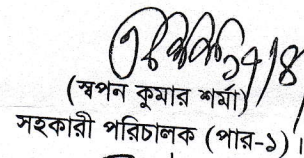 ১৭/৪
(স্বপন কুমার শর্মা)
সহকারী পরিচালক (পার-১)